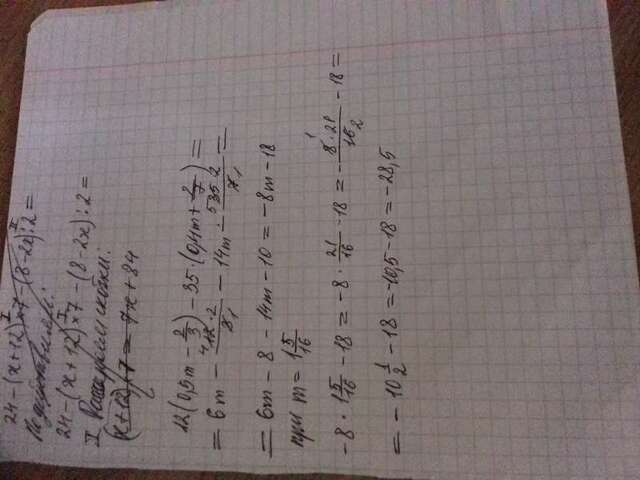 24 - (x+12) ×7 - (8-2x) : 2 =
По действиям:
24 - (x+12) ×7 - (8-2x) : 2 =
I Раскроем скобки:
(x+12) · 7 = 7x + 84
12(0,5m - 2/3) - 35·(0,4m + 2/7) =
= 6m - 12·2/3 - 14m - 35·2/7 =
= 6m - 8 - 14m - 10 = -8m - 18
при m = 1 5/16
-8 · 1 5/16 - 18 = -8 · 21/16 - 18 = - 8·21/16 - 18 =
= - 10 1/2 - 18 = -10,5 - 18 = -28,5